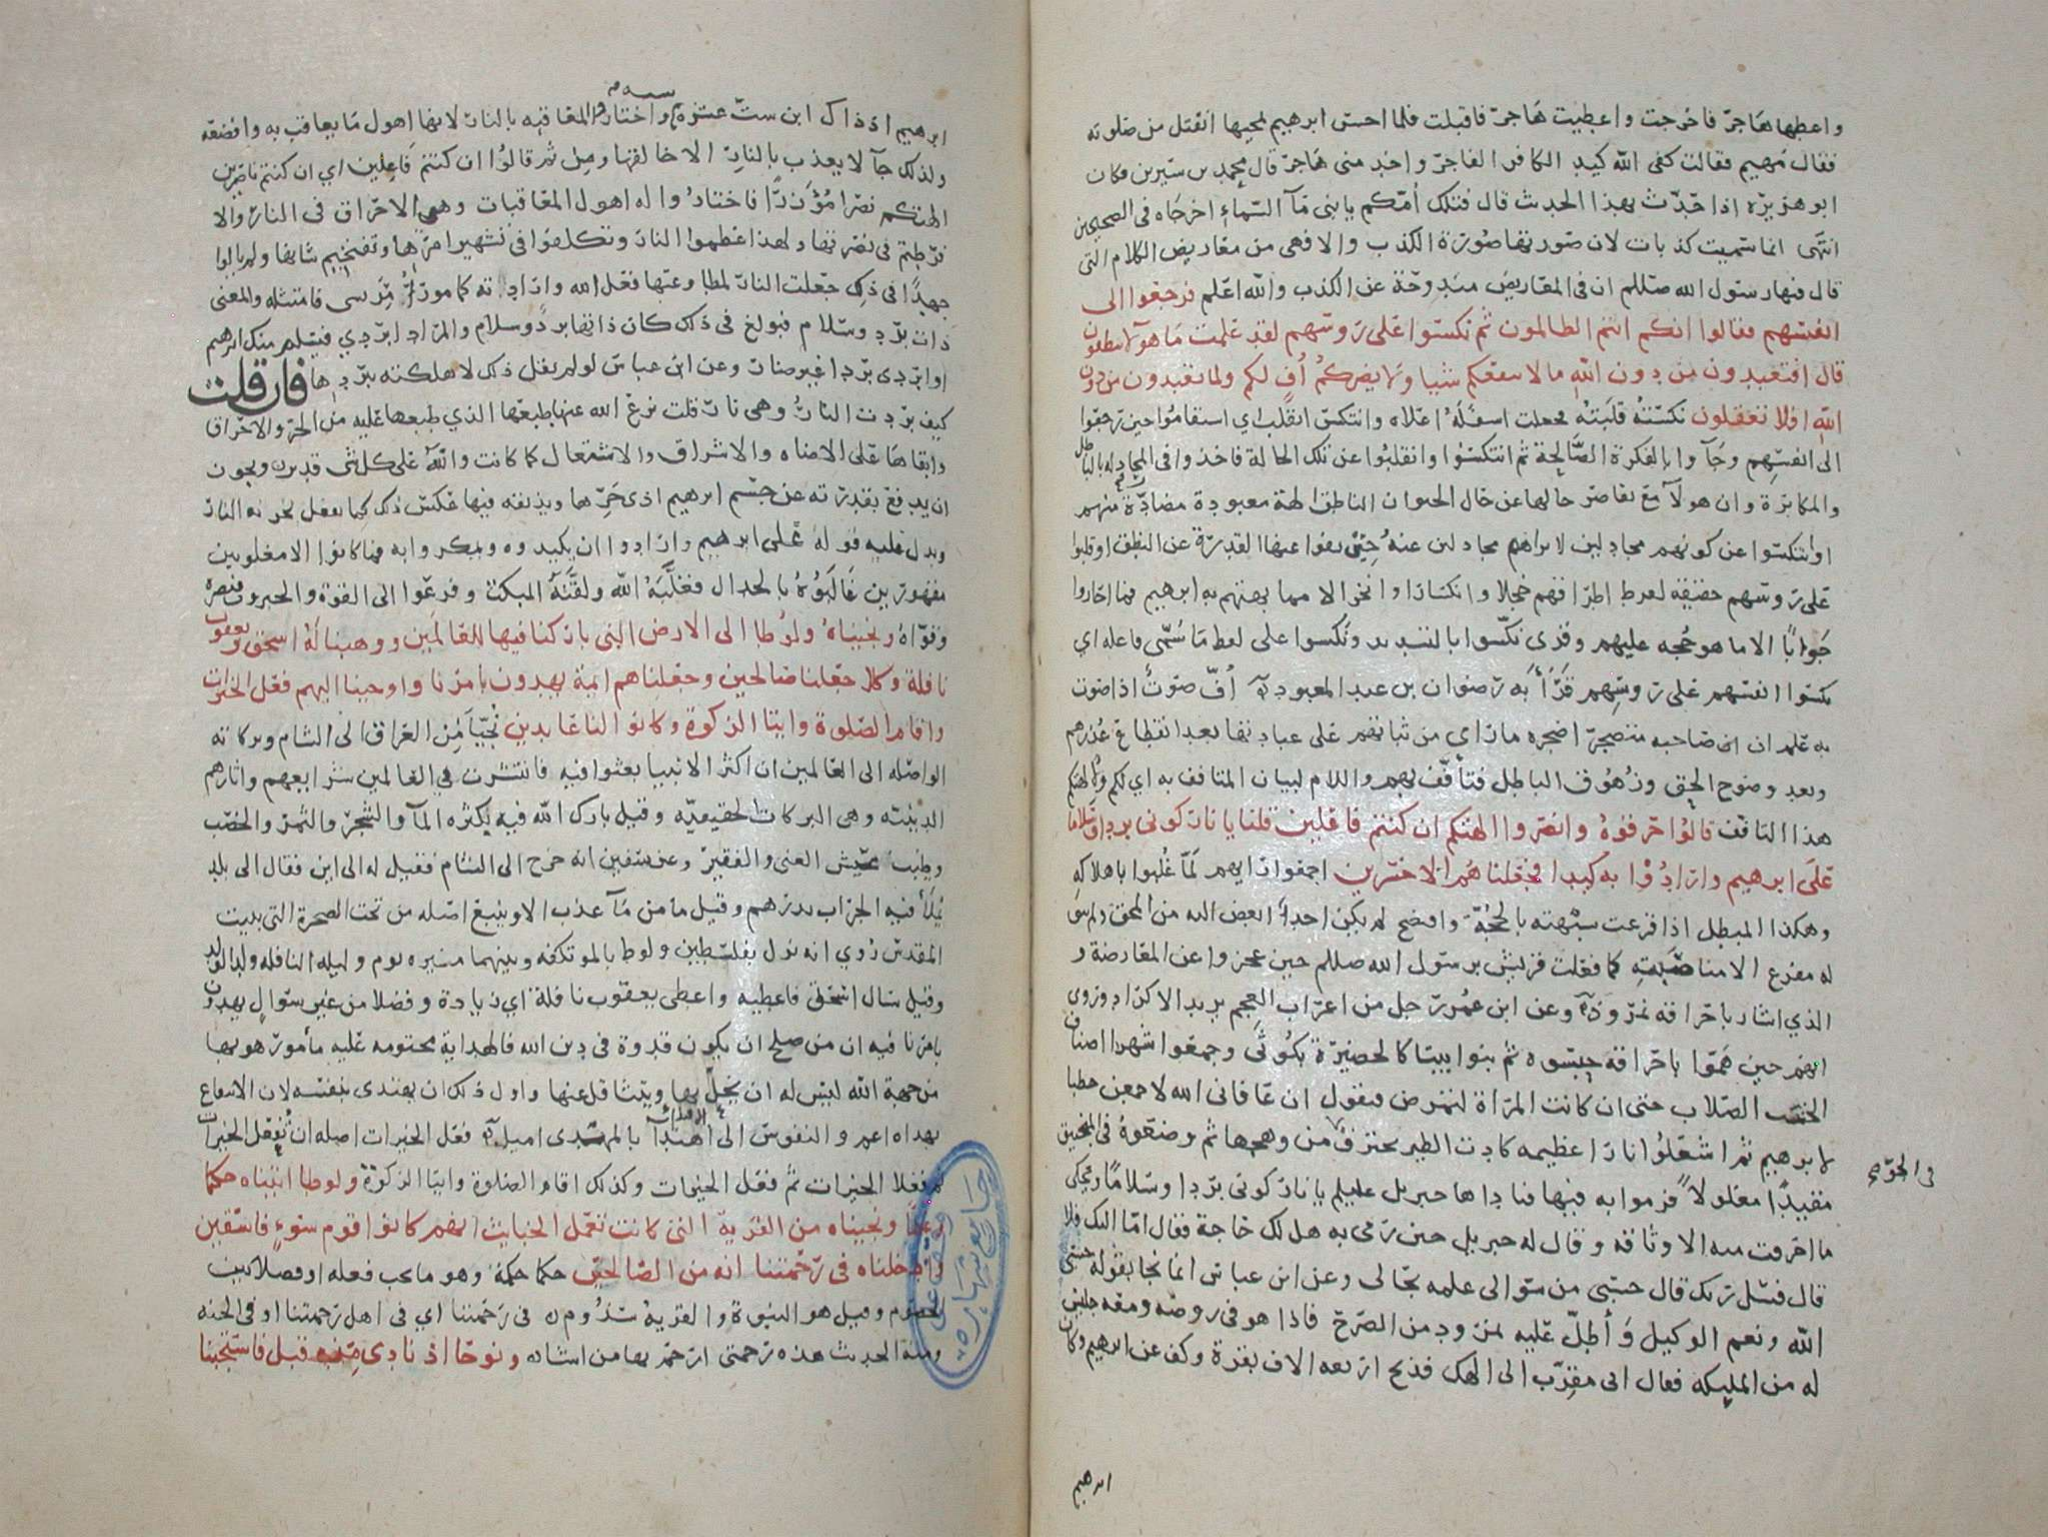 واعطها هاجر فاخرجت واعطيت هاجر فاقبلت فلما احس ابرهيم بمجيها انفتل من صلوته
فقال مهيم فقالت كفى الله كيد الكافر الفاجر واخدمنى هاجر قال محمد بن سيرين فكان
ابو هريره اذا حدث بهذا الحديث قال فتلك أمكم يا بنى مآ السماء اخرجاه فى الصحيحين
انتهى انما سميت كذبات لان صورتها صورة الكذب والا فهى من معاريض الكلام التى
قال فيها رسول الله صللم ان فى المعاريض مندوحة عن الكذب والله اعلم فرجعوا الى
انفسهم فقالوا انكم انتم الظالمون ثم نكسوا على روسهم لقد علمت ما هولا ينطقون
قال افتعبدون من دون الله ما لا ينفعكم شيا ولا يضركم أف لكم ولما تعبدون من دون
الله افلا تعقلون نكسته قلبته فجعلت اسفله اعلاه وانتكس انقلب اي استقاموا حين رجعوا
الى انفسهم وجآوا بالفكرة الصالحة ثم انتكسوا وانقلبوا عن تلك الحالة فاخذوا فى المجادله بالباطل
والمكابرة وان هولآ مع تقاصر حالها عن حال الحيوان الناطق الهة معبودة مضادة منهم
او انتكسوا عن كونهم مجادلين لابراهيم مجادلين عنه حين نفوا عنها القدرة عن النطق او قلبوا
على روسهم حقيقه لفرط اطراقهم خجلا وانكسارا وانخزالا مما بهتهم به ابرهيم فما احاروا
جوابًا الا ما هو حجه عليهم وقرى نكسوا بالتشديد ونكسوا على لفظ ما سمى فاعله اي
نكسوا انفسهم على روسهم قرأ به رضوان بن عبد المعبود أف صوت اذا صوت
به علم ان صاحبه متضجر اضجره ما راي من ثباتهم على عبادتها بعد انقطاع عذرهم
وبعد وضوح الحق وزهوق الباطل فتأفف بهم واللام لبيان المتافف به اي لكم ولالهتكم
هذا التافف قالوا حرقوه وانصروا الهتكم ان كنتم فاعلين قلنا يا نار كونى بردا وسلاما
على ابرهيم وارادوا به كيدا فجعلناهم الاخسرين اجمعوا رايهم لما غلبوا باهلاكه
وهكذا المبطل اذا قرعت شبهته بالحجة وافتضح لم يكن احد ابغض اليه من المحق ولم يبق
له مفزع الا مناصبته كما فعلت قريش برسول الله صللم حين عجزوا عن المعارضة و
الذي اشار باحراقه نمروذ وعن ابن عمر رجل من اعراب العجم يريد الاكراد وروى
انهم حين هموا باحراقه حبسوه ثم بنوا بيتا كالحضيرة بكوثى وجمعوا شهرا اصناف
الخشب الصلاب حتى ان كانت المراة لتمرض فتقول ان عافانى الله لاجمعن حطبا
لابرهيم ثم اشعلوا نارا عظيمه كادت الطير تحترق من وهجها ثم وضعوه فى المنجنيق
فى الجو
مقيدًا مغلولًا فرموا به فيها فناداها جبريل عليلم يا نار كونى بردا وسلاما ويحكى
ما احرقت منه الا وثاقه وقال له جبريل حين رمى به هل لك حاجة فقال امّا اليك فلا
قال فسل ربك قال حسبى من سوالى علمه بحالى وعن ابن عباس انما نجا بقوله حسبى
الله ونعم الوكيل وأطلّ عليه نمرود من الصرح فاذا هو فى روضه ومعه جليس
له من المليكه فقال انى مقرّب الى الهك فذبح اربعه الاف بقرة وكف عن ابرهيم وكان
ابرهيم
ابرهيم اذ ذاك ابن ستّ عشرة سنه واختاروا المعاقبه بالنار لانها اهول ما يعاقب به وافضعه
ولذلك جآ لا يعذب بالنار الا خالقها ومن ثم قالوا ان كنتم فاعلين اي ان كنتم ناصرين
الهتكم نصرا مؤزرًا فاختاروا له اهول المعاقبات وهى الاحراق فى النار والا
فرطتم فى نصرتها ولهذا عظموا النار وتكلفوا فى تشهير امرها وتفخيم شانها ولم يالوا
جهدًا فى ذلك جعلت النار لمطاوعتها فعل الله وارادته كمامور أُمر بشى فامتثله والمعنى
ذات برد وسلام فبولغ فى ذلك كان ذاتها برد وسلام والمراد ابردي فيسلم منك ابرهيم
او ابردى بردا غير ضار وعن ابن عباس لو لم يقل ذلك لاهلكته ببردها فان قلت
كيف بردت النار وهى نار قلت نزع الله عنها طبعها الذي طبعها عليه من الحر والاحراق
وابقاها على الاضاه والاشراق والاشتعال كما كانت والله على كل شى قدير ويجون
ان يدفع بقدرته عن جسم ابرهيم اذى حرّها ويذيقه فيها عكس ذلك كما يفعل بخزنه النار
ويدل عليه قوله على ابرهيم وارادوا ان يكيدوه ويمكروا به فما كانوا الا مغلوبين
مقهورين غالبوه بالجدال فغلّبه الله ولقنه المبكت وفزعوا الى القوة والجبروت فنصره
وقوّاه ونجيناه ولوطا الى الارض التى باركنا فيها للعالمين ووهبنا له اسحق ويعقوب
نافلة وكلا جعلنا صالحين وجعلناهم ايمة يهدون بامرنا واوحينا اليهم فعل الخيرات
واقام الصلوة وايتا الزكوة وكانوا لنا عابدين نُجّيا من العراق الى الشام وبركاته
الواصله الى العالمين ان اكثر الانبيا بعثوا فيه فانتشرت فى العالمين شرايعهم واثارهم
الدينيه وهى البركات الحقيقيه وقيل بارك الله فيه بكثره المآ والشجر والثمر والخصب
وطيب عيش الغنى والفقير وعن سفين انه خرج الى الشام فقيل له الى اين فقال الى بلد
يُملأ فيه الجراب بدرهم وقيل ما من مآ عذب الا وينبع اصله من تحت الصخرة التى ببيت
المقدس رُوي انه نزل بفلسطين ولوط بالموتفكه وبينهما مسيره يوم وليله النافله ولد الولد
وقيل سال اسحق فاعطيه واعطى يعقوب نافلة اي زيادة وفضلا من غير سوال يهدون
بامرنا فيه ان من صلح ان يكون قدوة فى دين الله فالهداية محتومه عليه مأمور هو بها
من جهة الله ليس له ان يخلّ بها ويتثاقل عنها واول ذلك ان يهتدى بنفسه لان الانتفاع
بهداه اعم والنفوس الى الاقتدآ بالمهتدى اميل فعل الخيرات اصله ان تُفعل الخيرات
ثم فعلا الخيرات ثم فعل الخيرات وكذلك اقام الصلوة وايتا الزكوة ولوطا اتيناه حكما
وعلما ونجيناه من القرية التى كانت تعمل الخبايث انهم كانوا قوم سوء فاسقين
وادخلناه فى رحمتنا انه من الصالحين حكما حكمة وهو ما يجب فعله او فصلا بين
الخصوم وقيل هو النبوة والقرية سذوم فى رحمتنا اي فى اهل رحمتنا او فى الجنه
ومنه الحديث هذه رحمتى ارحم بها من اشا ونوحا اذ نادى من قبل فاستجبنا